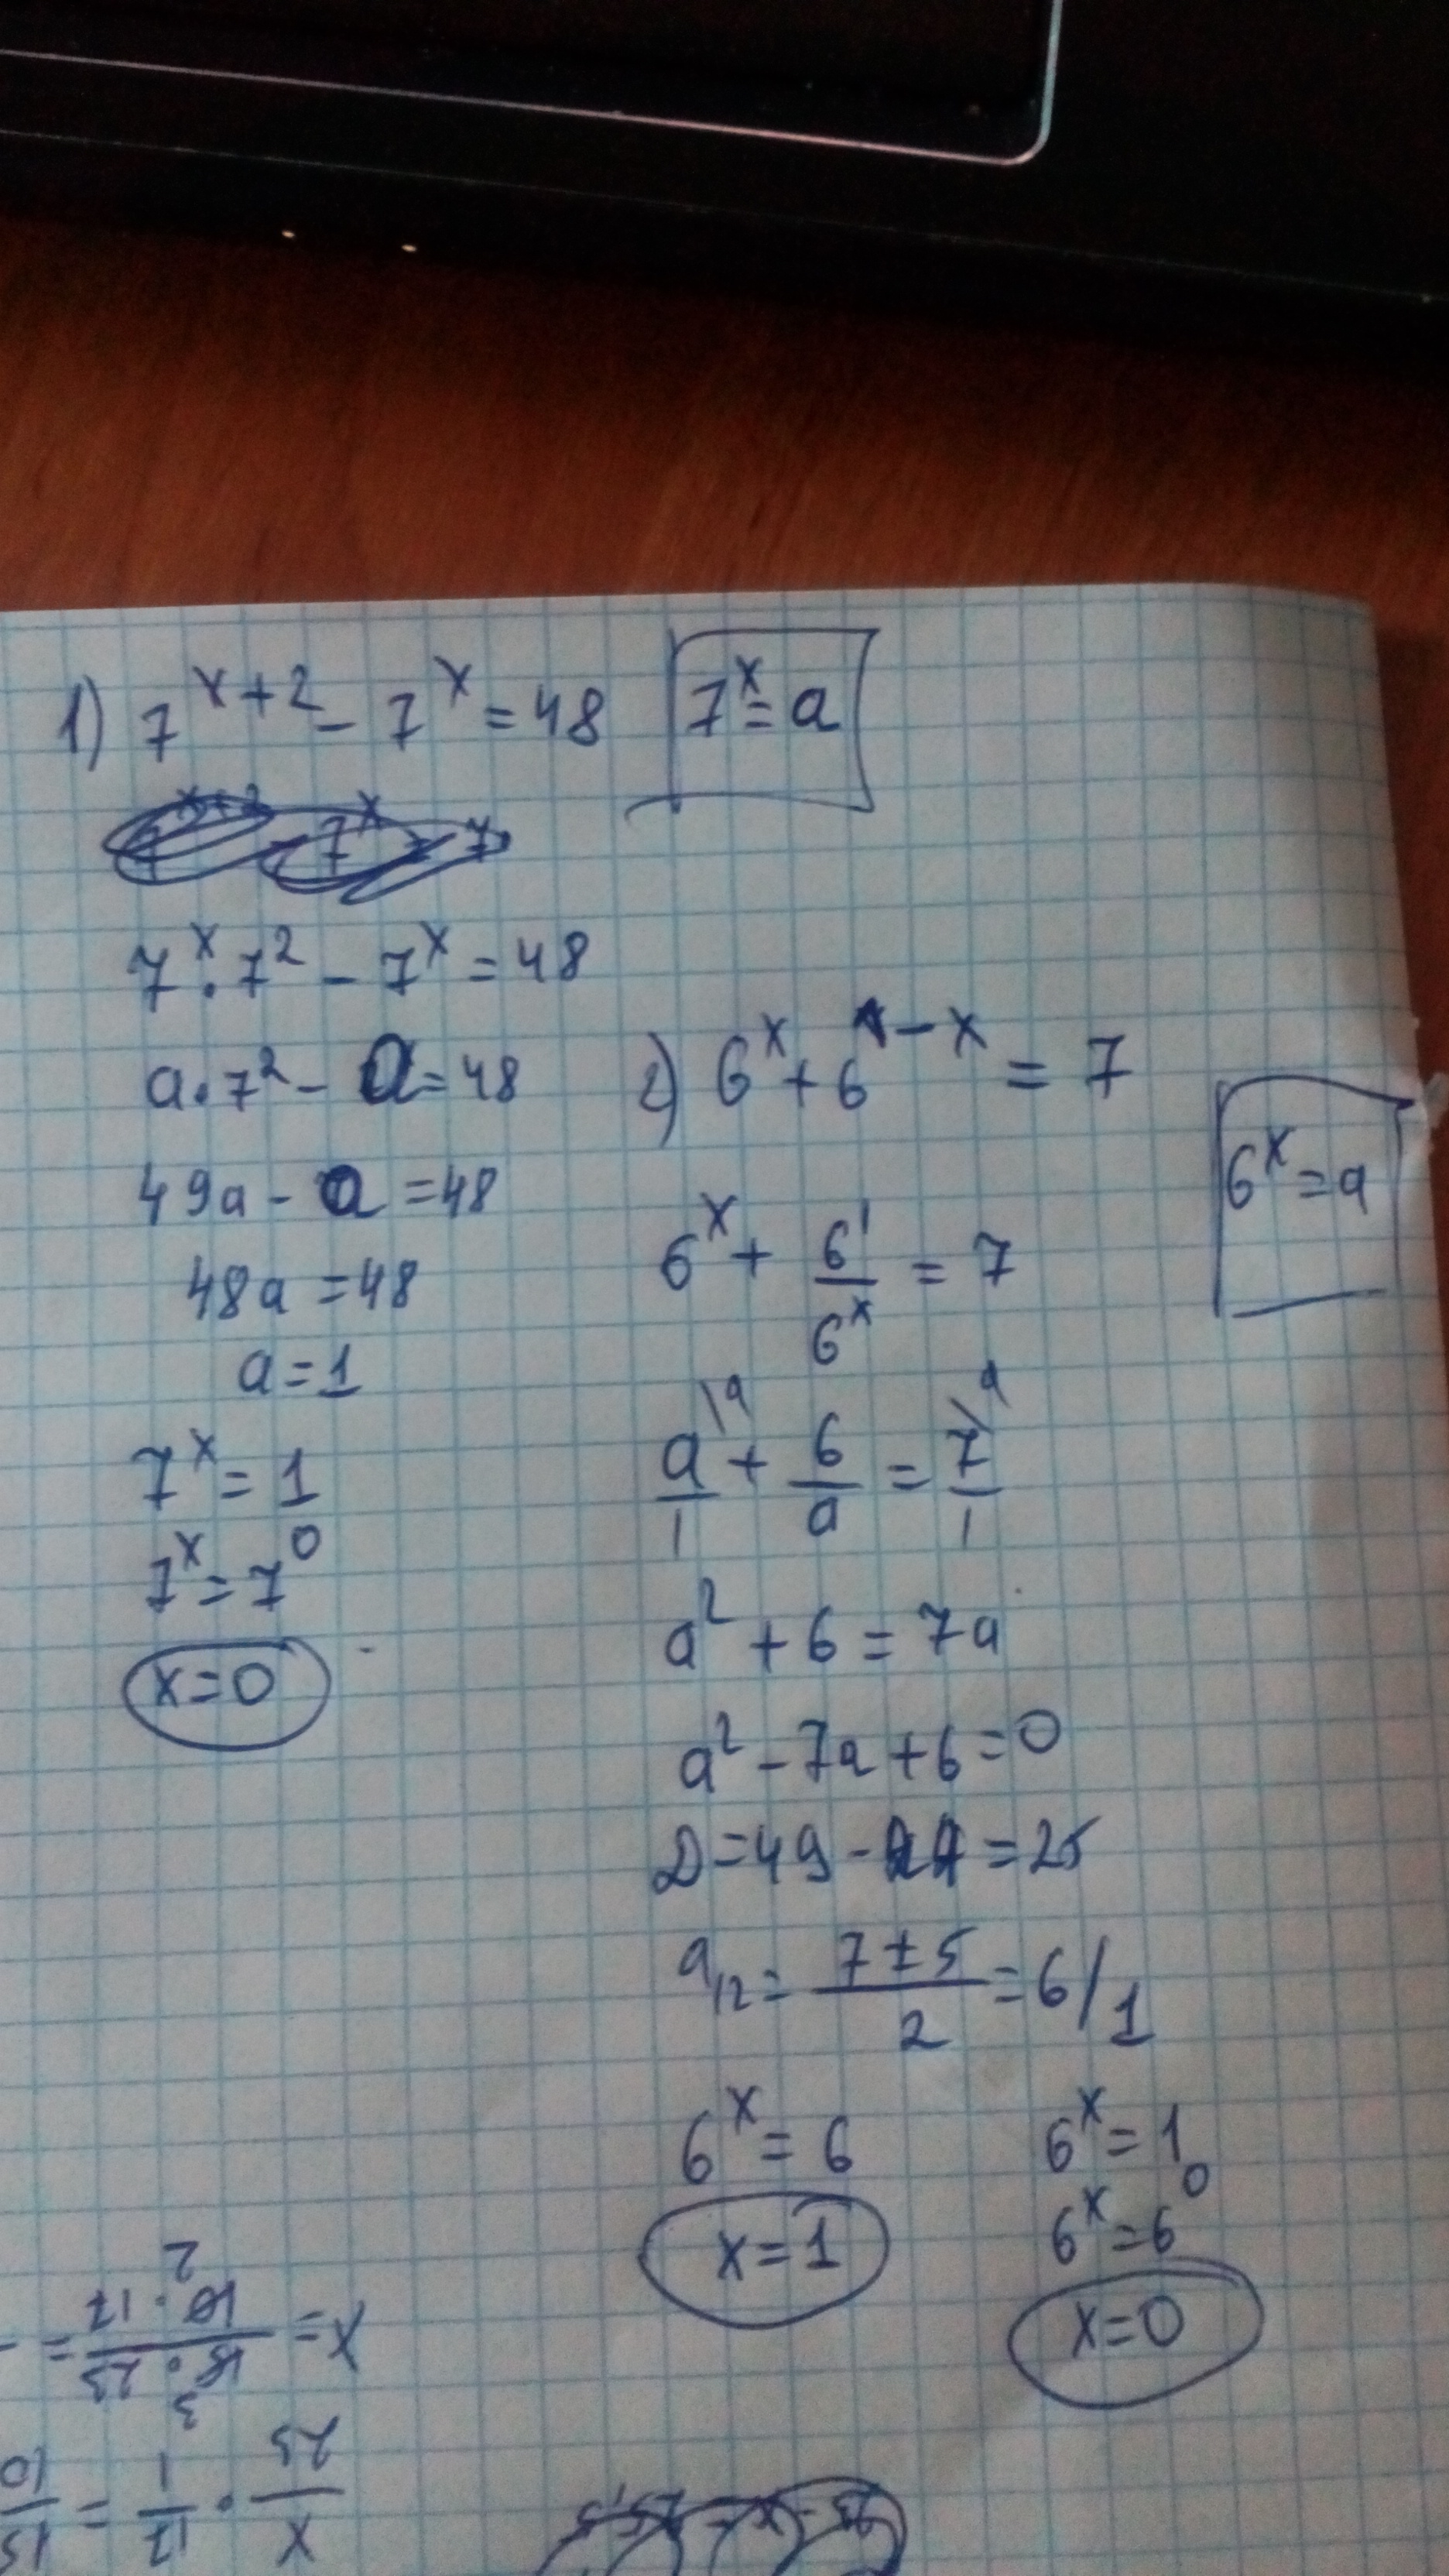 1) 7^{x+2} - 7^x = 48
7^x = a
7^x · 7^2 - 7^x = 48
a · 7^2 - a = 48
49a - a = 48
48a = 48
a = 1
7^x = 1
7^x = 7^0
x = 0
2) 6^x + 6^{1-x} = 7
6^x = a
6^x + \frac{6^1}{6^x} = 7
\frac{a}{1}^{\a} + \frac{6}{a} = \frac{7}{1}^{\a}
a^2 + 6 = 7a
a^2 - 7a + 6 = 0
D = 49 - 24 = 25
a_{12} = \frac{7 ± 5}{2} = 6/1
6^x = 6
x = 1
6^x = 1
6^x = 6^0
x = 0